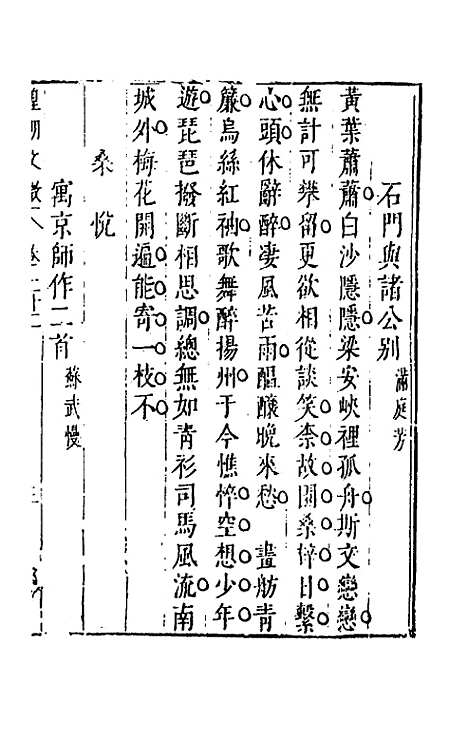 石門與諸公别 滿庭芳
黃葉蕭蕭白沙隱隱梁安峽裡孤舟斯文戀戀
無計可樊留更欲相從談笑柰故園桑梓日繫
心頭休辭醉凄風苦雨醞釀晚來愁 畫舫青
簾烏絲紅袖歌舞醉揚州于今憔悴空想少年
遊琵琶撥斷相思調總無如青衫司馬風流南
城外梅花開遍能寄一枝不
桑悅
寓京師作二首 蘇武慢
皇明文徵 卷二十二